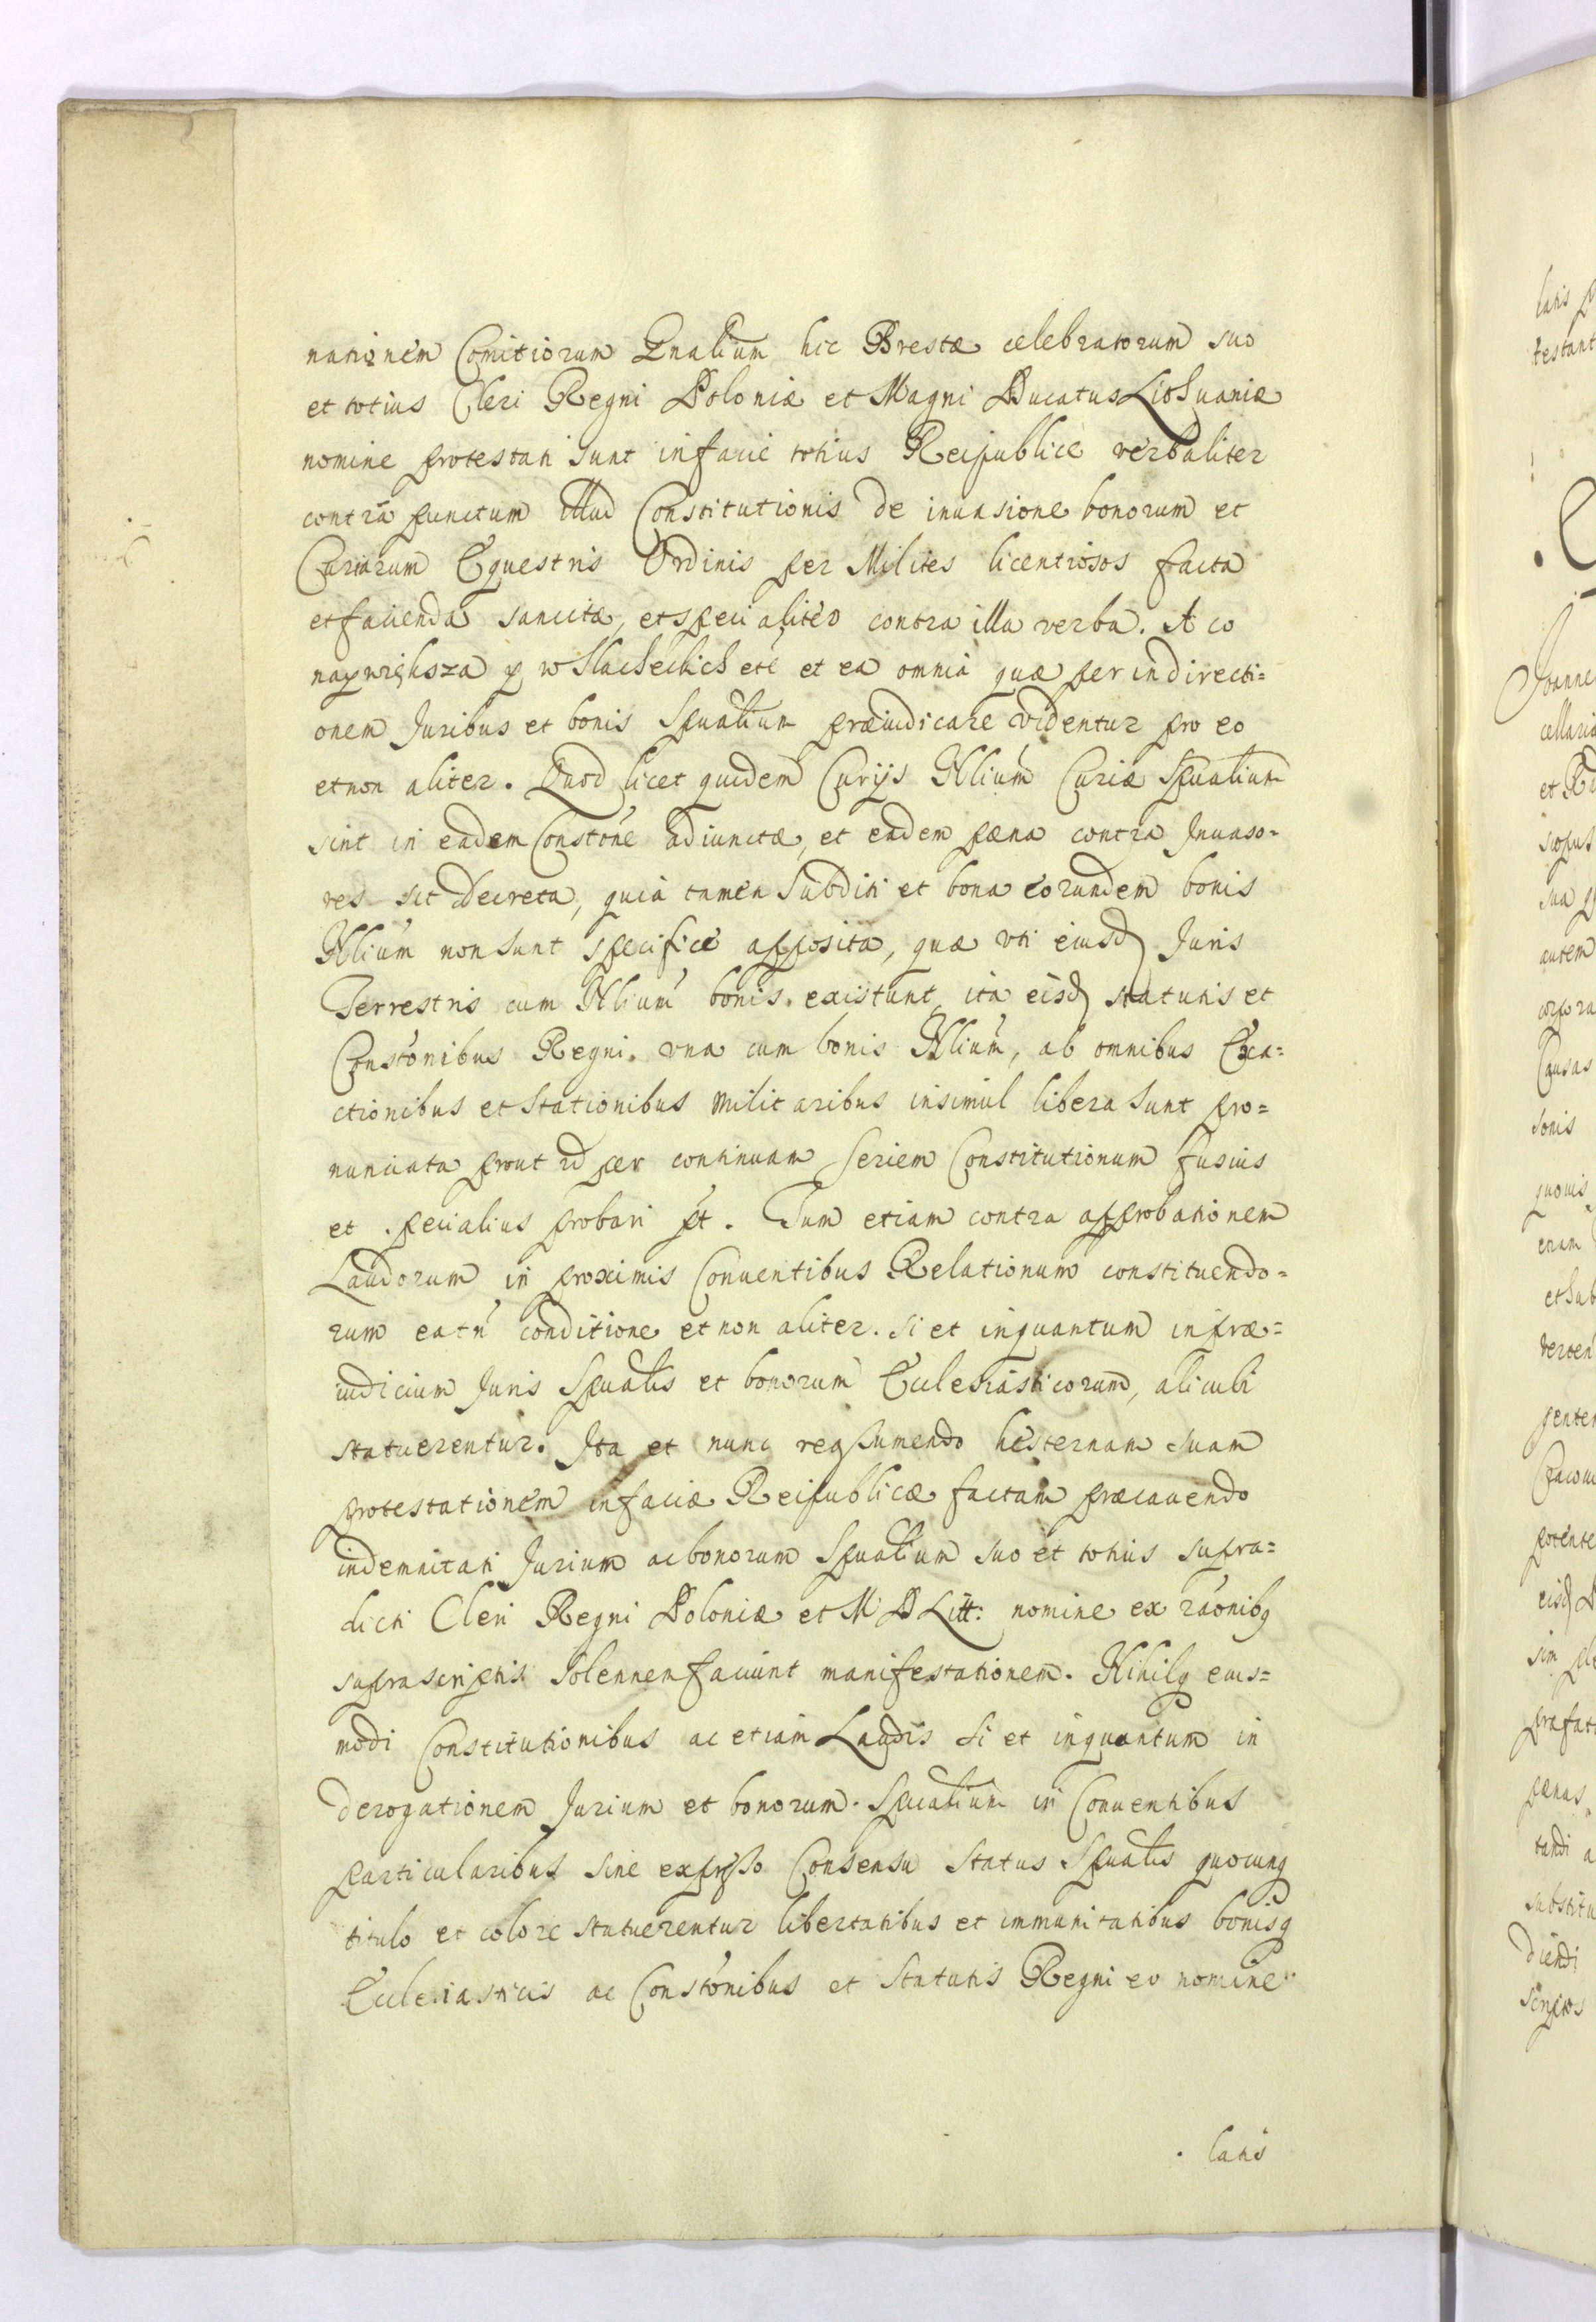 nationem Comitiorum Gnalium hic Brestæ celebratorum suo
et totius Cleri Regni Poloniæ et Magni Ducatus Lithuaniæ
nomine protestati sunt in facie totius Reipublicæ verbaliter
contra punctum illud Constitutionis de inuasione bonorum et
Curiarum Equestris Ordinis per Milites licentiosos facta
et facienda sancitæ, et specialiter contra illa verba. A co
naywiększa y w Slacheckich etc et ea omnia quæ per indirecti=
onem Juribus et bonis Spualium præiudicare videntur pro eo
et non aliter. Quod licet quidem Curijs Nlium Curiæ Spualium
sint in eadem Constone adiunctæ, et eadem pæna contra Inuaso=
res sit decreta, quia tamen Subditi et bona eorundem bonis
Nlium non sunt specifice apposita, quæ vti eiusd Juris
Terrestris cum Nlium bonis existunt, ita eisd statutis et
Constonibus Regni. vna cum bonis Nlium, ab omnibus Exa=
ctionibus et Stationibus militaribus insimul libera sunt pro=
nunciata prout id per continuam Seriem Constitutionum fusius
et specialius probari pt. Tum etiam contra approbationem
Laudorum in proximis Conuentibus Relationum constituendo=
rum ea tn conditione et non aliter. si et inquantum in præ=
iudicium Juris Spualis et bonorum Ecclesiasticorum, alicubi
statuerentur. Ita et nunc reassumendo hesternam suam
protestationem in faciæ Reipublicæ factam præcauendo
indemnitati Jurium ac bonorum Spualium suo et totius supra=
dicti Cleri Regni Poloniæ et M D Litt: nomine ex raonibq
suprascriptis Solennem faciunt manifestationem. Nihilq eius=
modi Constitutionibus ac etiam Laudis Si et inquantum in
derogationem Jurium et bonorum Spualium in Conuentibus
particularibus sine expresso Consensu Status Spualis quocunq
titulo et colore statuerentur libertatibus et immunitatibus bonisq
Ecclesiasticis ac Constonibus et Statutis Regni eo nomine
latis